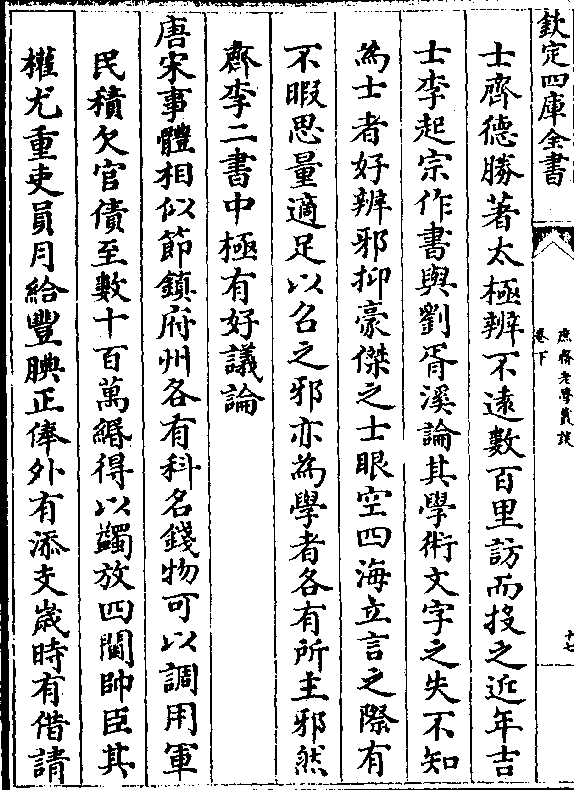 欽定四庫全書
庶齋老學叢談
卷下
十七
士齊德勝著太極辨不遠數百里訪而投之近年吉
士李起宗作書與劉胥溪論其學術文字之失不知
為士者好辨邪抑豪傑之士眼空四海立言之際有
不暇思量適足以召之邪亦為學者各有所主邪然
齊李二書中極有好議論
唐宋事體相似節鎮府州各有科名錢物可以調用軍
民積欠官債至數十百萬緡得以蠲放四閫帥臣其
權尤重吏員月給豐腆正俸外有添支歲時有借請